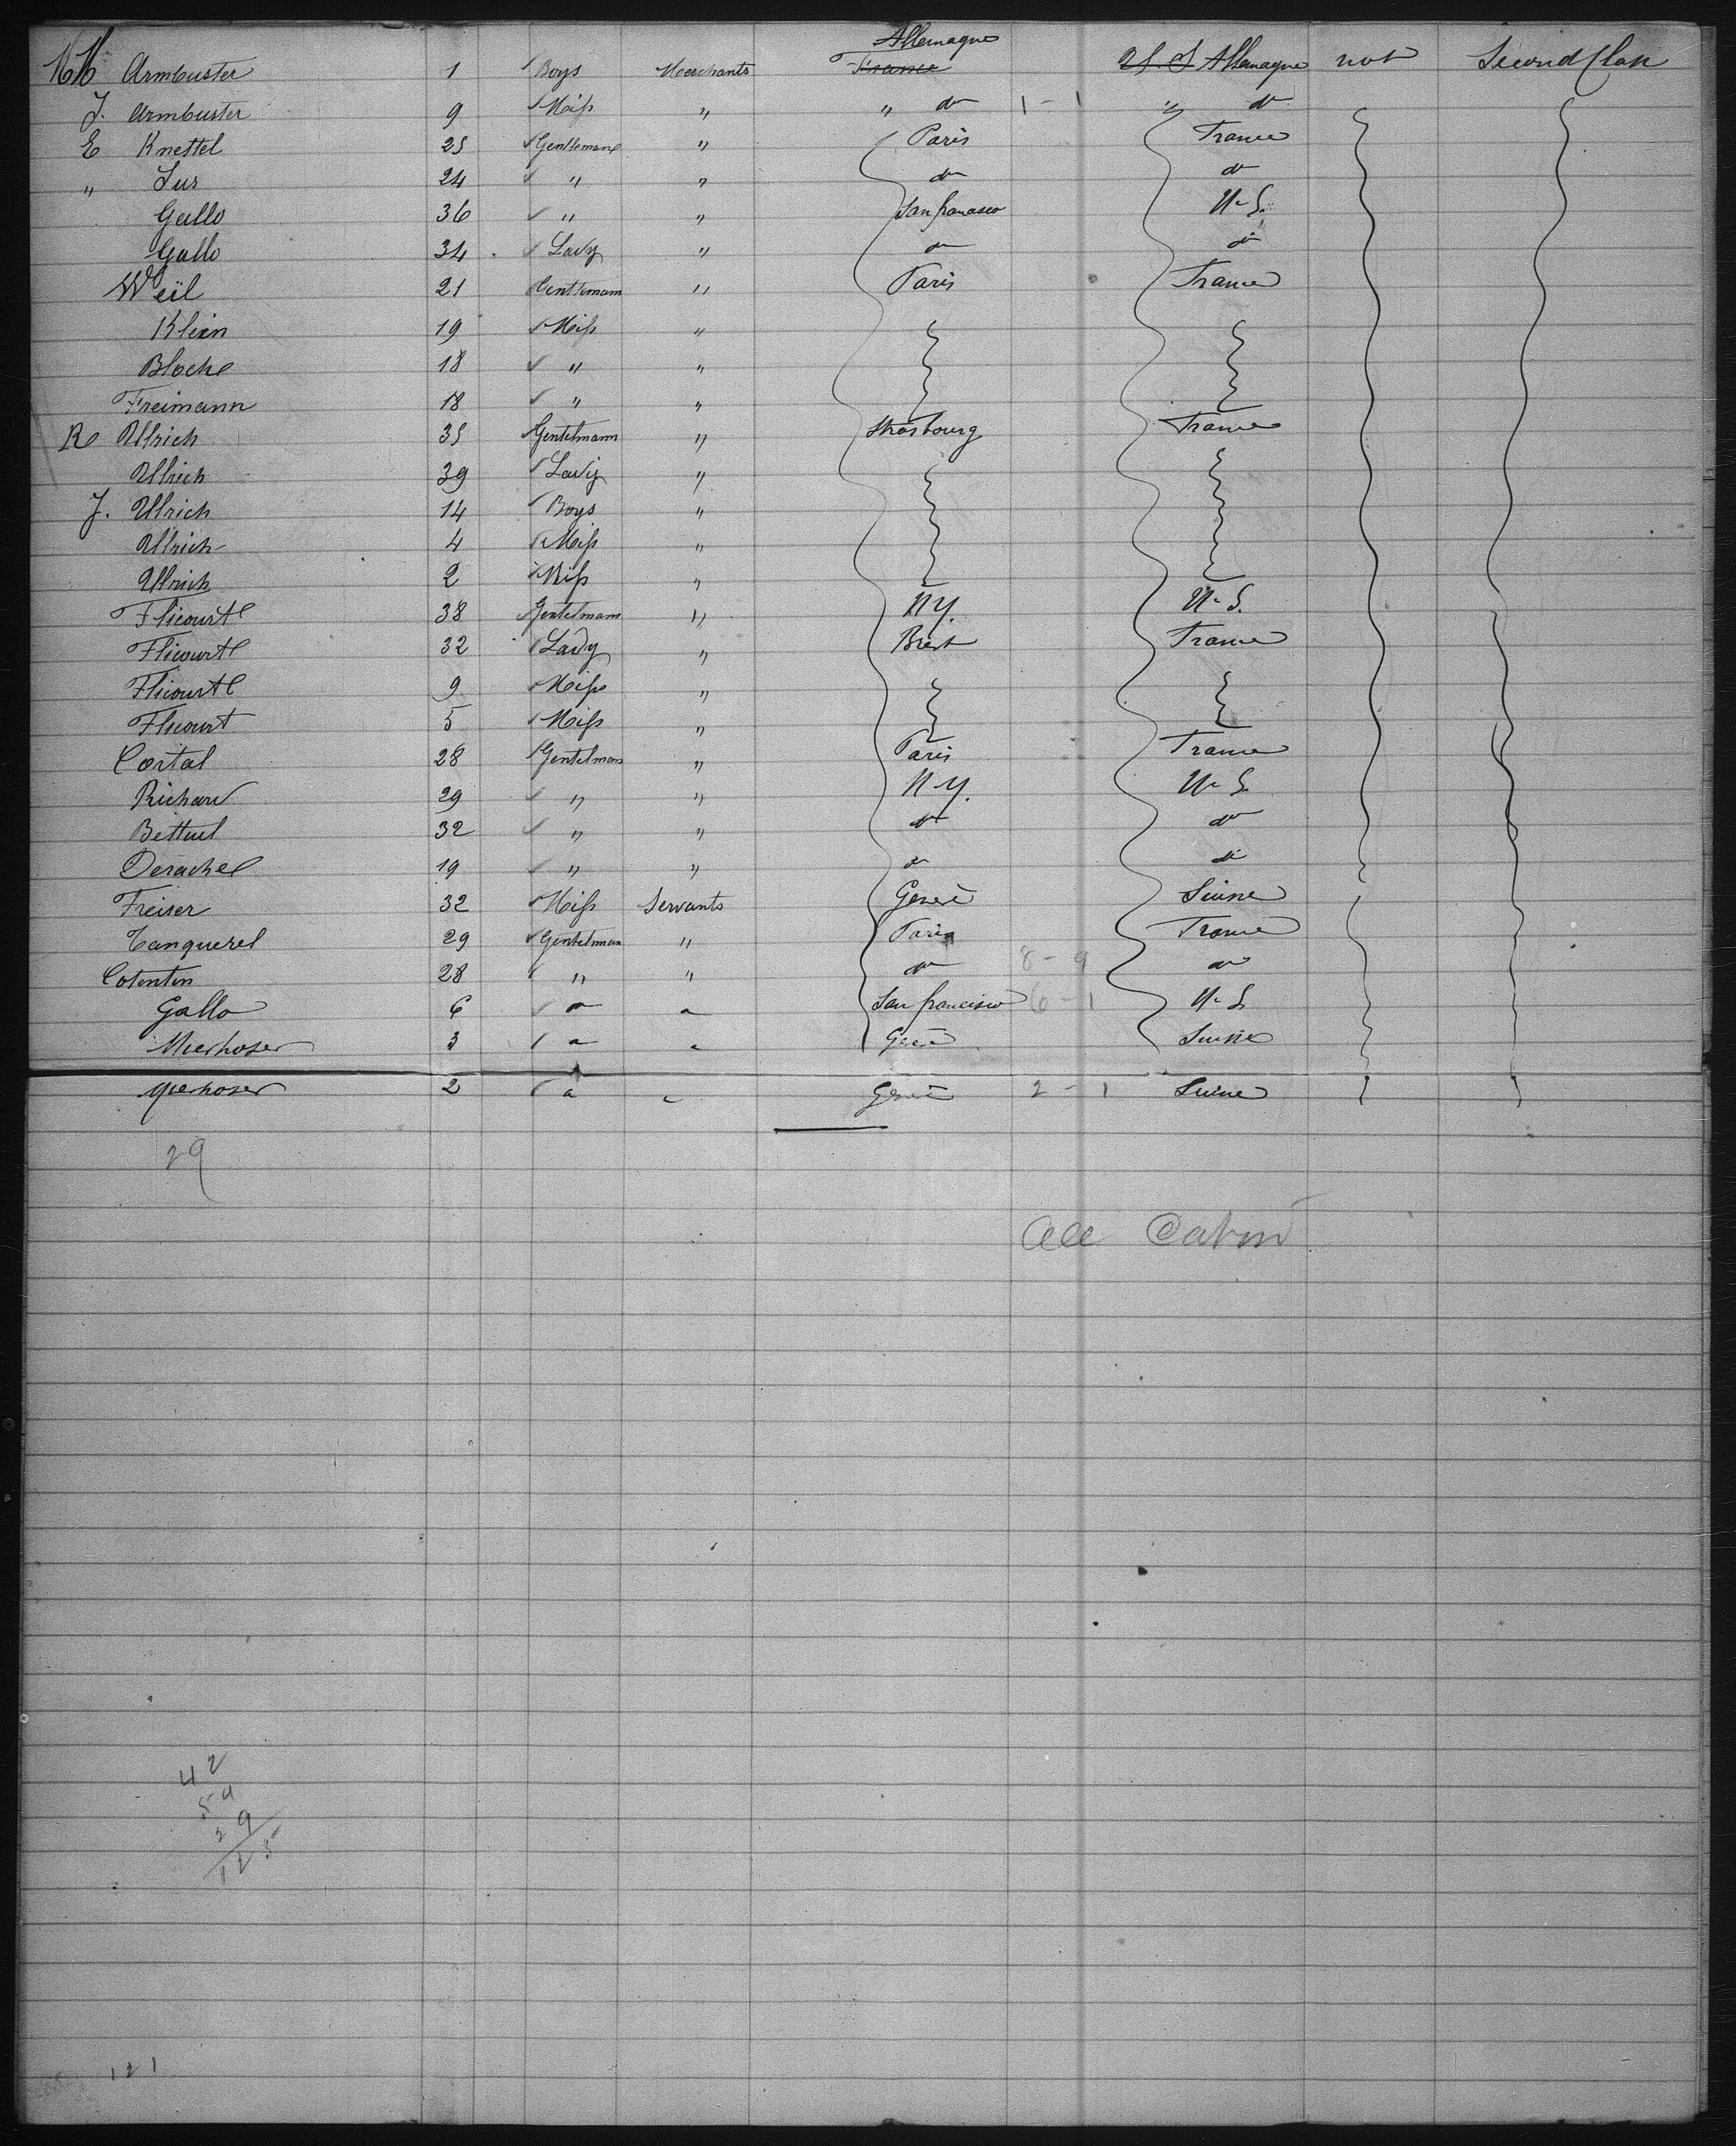 Allemagne
MM Armbuster 1 Boys Merchants France U. S Allemagne not Second Class
J. Armbuster 9 Miss " " do 1 - 1 " do
E Knettel 25 Gentleman " Paris France
" Lus 24 " " do do
Gallo 36 " " San francisco U. S.
Gallo 34 Lady " do do
Weil 21 Gentlemann " Paris France
Klein 19 Miss "
Bloche 18 " "
Freimann 18 " "
R Ullrich 35 Gentelmann " Strasbourg France
Ullrich 39 Lady "
J. Ullrich 14 Boys "
Ullrich 4 Miss "
Ullrich 2 Miss "
Flicourt 38 Gentelmann " N Y. U. S.
Flicourt 32 Lady " Brest France
Flicourt 9 Miss "
Flicourt 5 Miss "
Cortal 28 Gentelman " Paris France
Richard 29 " " N Y. U. S.
Bettuel 32 " " do do
Derachel 19 " " do do
Freiser 32 Miss Servants Genève Suisse
Tanquerel 29 Gentelman " Paris France
Cotentin 28 " " do 8 - 9 do
Gallo 6 " " San francisco 6 - 1 U. S.
Mierhoser 3 " " Genève Suisse
Mierhoser 2 " " Genève 2 - 1 Suisse
29
All Cabin
42
54
29
125
121